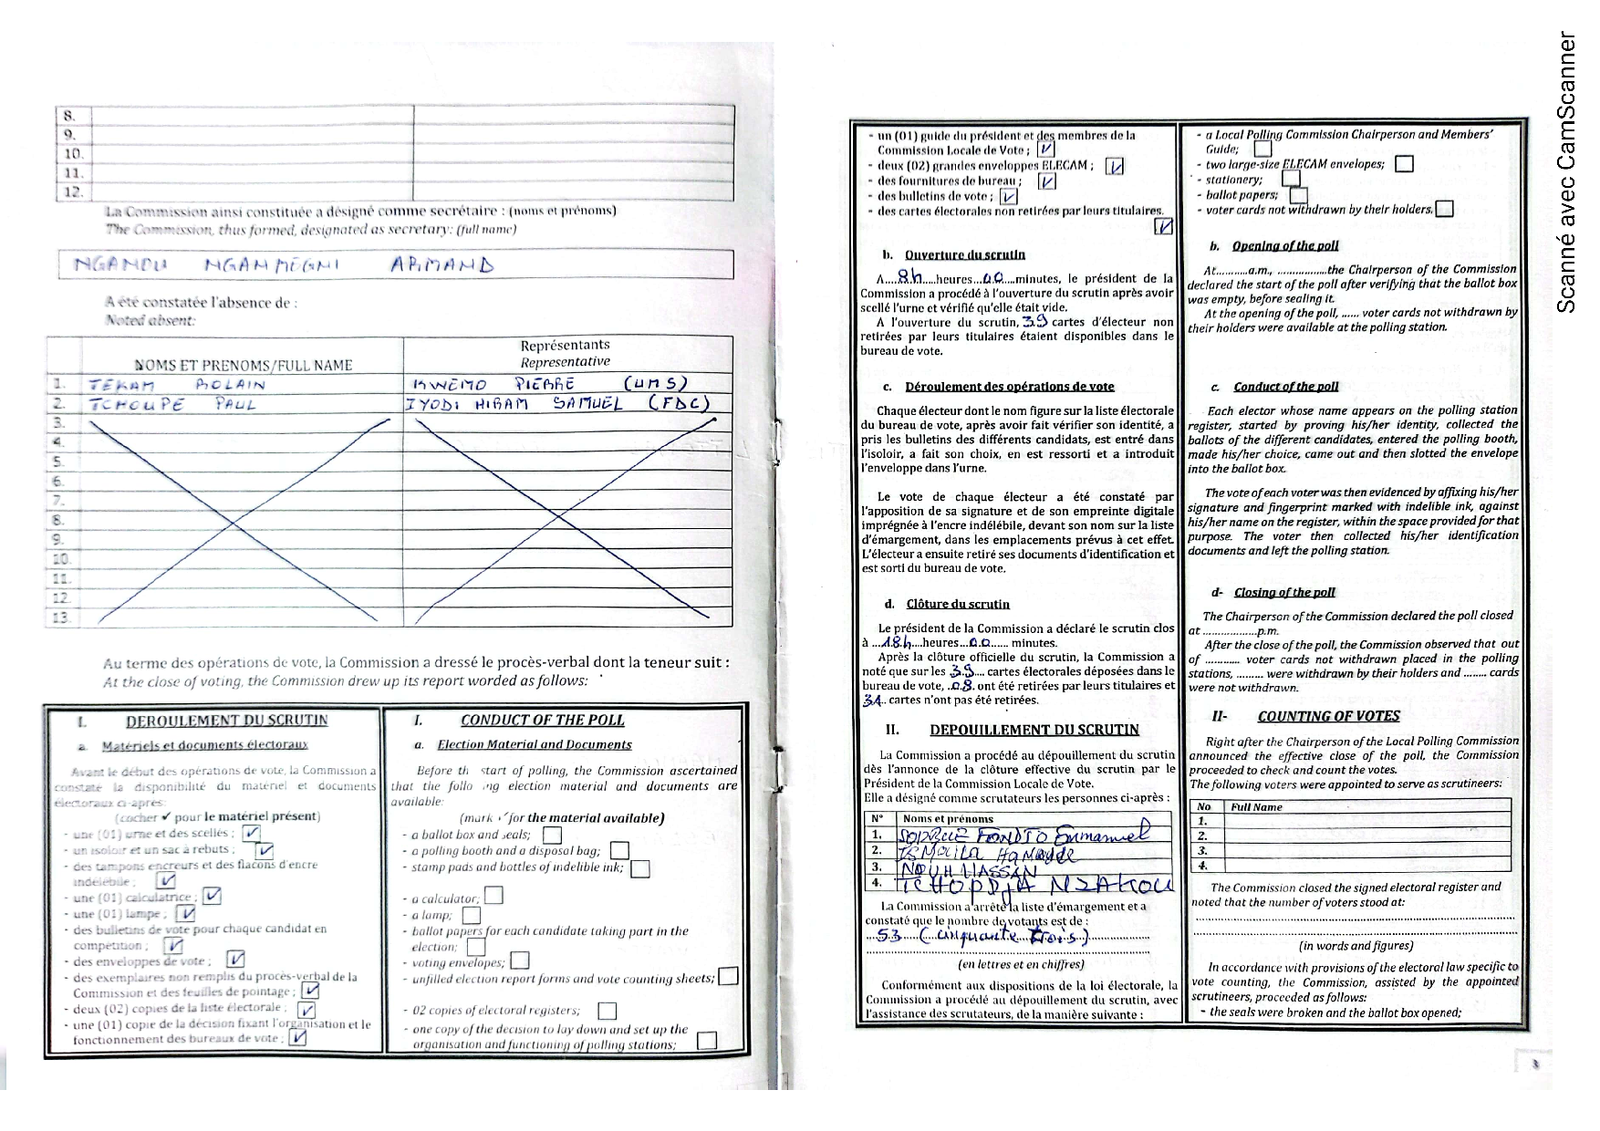 8.
9.
10.
11.
12.
La Commission ainsi constituée a désigné comme secrétaire : (noms et prénoms)
The Commission, thus formed, designated as secretary: (full name)
NGANDU NGANMEGNI ARMAND
A été constatée l'absence de :
Noted absent:
NOMS ET PRENOMS/FULL NAME
Représentants
Representative
1. TEKAM ROLAIN KWEMO PIERRE (UMS)
2. TCHOUPE PAUL IYODI HIRAM SAMUEL (FDC)
3.
4.
5.
6.
7.
8.
9.
10
11.
12
13.
Au terme des opérations de vote, la Commission a dressé le procès-verbal dont la teneur suit :
At the close of voting, the Commission drew up its report worded as follows:
I. DEROULEMENT DU SCRUTIN
a. Matériels et documents électoraux
Avant le début des opérations de vote, la Commission a
constaté la disponibilité du matériel et documents
électoraux ci-après:
(cocher ✔ pour le matériel présent)
- une (01) urne et des scellés ;
- un isoloir et un sac à rebuts ;
- des tampons encreurs et des flacons d'encre
indélébile ;
- une (01) calculatrice ;
- une (01) lampe ;
- des bulletins de vote pour chaque candidat en
compétition ;
- des enveloppes de vote ;
- des exemplaires non remplis du procès-verbal de la
Commission et des feuilles de pointage ;
- deux (02) copies de la liste électorale ;
- une (01) copie de la décision fixant l'organisation et le
fonctionnement des bureaux de vote ;
I. CONDUCT OF THE POLL
a. Election Material and Documents
Before th start of polling, the Commission ascertained
that the follo ing election material and documents are
available:
(mark for the material available)
- a ballot box and seals;
- a polling booth and a disposal bag;
- stamp pads and bottles of indelible ink;
- a calculator;
- a lamp;
- ballot papers for each candidate taking part in the
election;
- voting envelopes;
- unfilled election report forms and vote counting sheets;
- 02 copies of electoral registers;
- one copy of the decision to lay down and set up the
organisation and functioning of polling stations;
- un (01) guide du président et des membres de la
Commission Locale de Vote ;
- deux (02) grandes enveloppes ELECAM ;
- des fournitures de bureau ;
- des bulletins de vote ;
- des cartes électorales non retirées par leurs titulaires.
b. Ouverture du scrutin
A....8h.....heures...00....minutes, le président de la
Commission a procédé à l'ouverture du scrutin après avoir
scellé l'urne et vérifié qu'elle était vide.
A l'ouverture du scrutin, 39 cartes d'électeur non
retirées par leurs titulaires étaient disponibles dans le
bureau de vote.
c. Déroulement des opérations de vote
Chaque électeur dont le nom figure sur la liste électorale
du bureau de vote, après avoir fait vérifier son identité, a
pris les bulletins des différents candidats, est entré dans
l'isoloir, a fait son choix, en est ressorti et a introduit
l'enveloppe dans l'urne.
Le vote de chaque électeur a été constaté par
l'apposition de sa signature et de son empreinte digitale
imprégnée à l'encre indélébile, devant son nom sur la liste
d'émargement, dans les emplacements prévus à cet effet.
L'électeur a ensuite retiré ses documents d'identification et
est sorti du bureau de vote.
d. Clôture du scrutin
Le président de la Commission a déclaré le scrutin clos
à ...18h....heures...00...... minutes.
Après la clôture officielle du scrutin, la Commission a
noté que sur les 39.... cartes électorales déposées dans le
bureau de vote, .08. ont été retirées par leurs titulaires et
31.. cartes n'ont pas été retirées.
II. DEPOUILLEMENT DU SCRUTIN
La Commission a procédé au dépouillement du scrutin
dès l'annonce de la clôture effective du scrutin par le
Président de la Commission Locale de Vote.
Elle a désigné comme scrutateurs les personnes ci-après :
N° Noms et prénoms
1. FONDJO Emmanuel
2. ISMAILA HAMADOU
3. NOUH HASSAN
4. TCHOPDJA NZAKOU
La Commission a arrêté la liste d'émargement et a
constaté que le nombre de votants est de :
...53...( cinquante trois)..............
(en lettres et en chiffres)
Conformément aux dispositions de la loi électorale, la
Commission a procédé au dépouillement du scrutin, avec
l'assistance des scrutateurs, de la manière suivante :
- a Local Polling Commission Chairperson and Members'
Guide;
- two large-size ELECAM envelopes;
- stationery;
- ballot papers;
- voter cards not withdrawn by their holders.
b. Opening of the poll
At..........a.m., .................the Chairperson of the Commission
declared the start of the poll after verifying that the ballot box
was empty, before sealing it.
At the opening of the poll, ...... voter cards not withdrawn by
their holders were available at the polling station.
c. Conduct of the poll
Each elector whose name appears on the polling station
register, started by proving his/her identity, collected the
ballots of the different candidates, entered the polling booth,
made his/her choice, came out and then slotted the envelope
into the ballot box.
The vote of each voter was then evidenced by affixing his/her
signature and fingerprint marked with indelible ink, against
his/her name on the register, within the space provided for that
purpose. The voter then collected his/her identification
documents and left the polling station.
d- Closing of the poll
The Chairperson of the Commission declared the poll closed
at ..................p.m.
After the close of the poll, the Commission observed that out
of ............ voter cards not withdrawn placed in the polling
stations, ......... were withdrawn by their holders and ........ cards
were not withdrawn.
II- COUNTING OF VOTES
Right after the Chairperson of the Local Polling Commission
announced the effective close of the poll, the Commission
proceeded to check and count the votes.
The following voters were appointed to serve as scrutineers:
No Full Name
1.
2.
3.
4.
The Commission closed the signed electoral register and
noted that the number of voters stood at:
(in words and figures)
In accordance with provisions of the electoral law specific to
vote counting, the Commission, assisted by the appointed
scrutineers, proceeded as follows:
- the seals were broken and the ballot box opened;
Scanné avec CamScanner